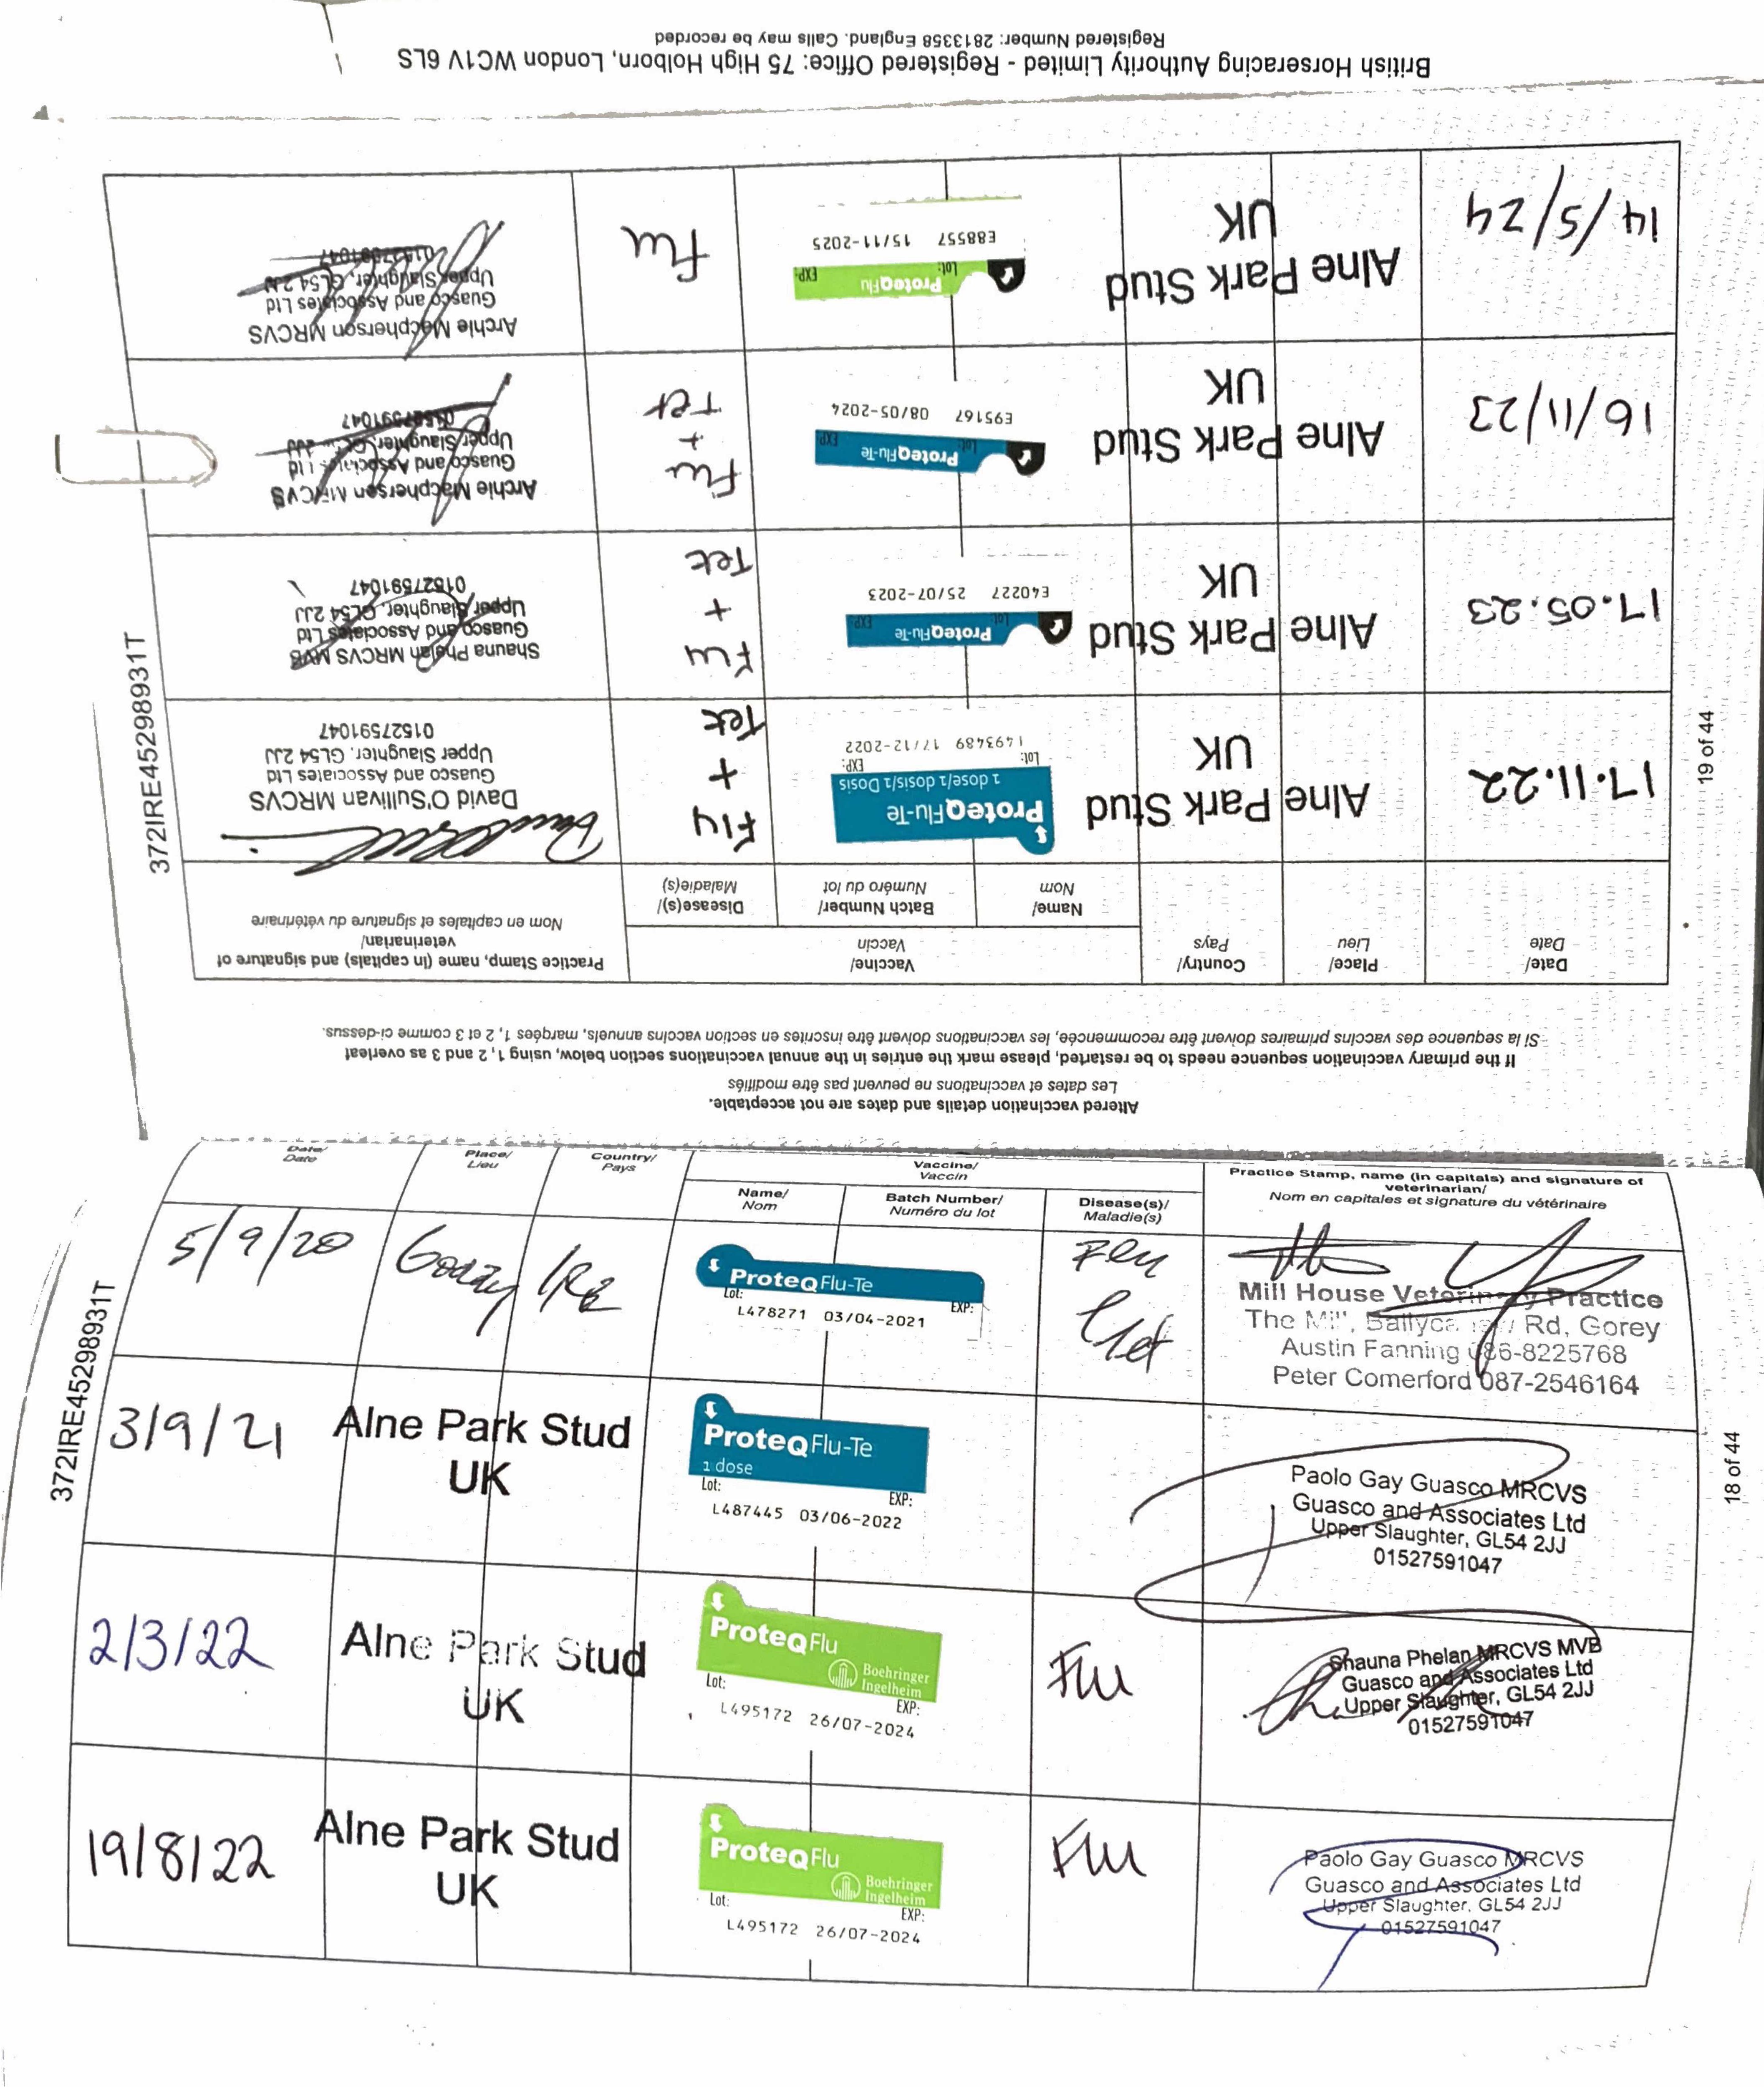 British Horseracing Authority Limited - Registered Office: 75 High Holborn, London WC1V 6LS
Registered Number: 2813358 England. Calls may be recorded
372IRE45298931T
18 of 44
Date/ Date
Place/ Lieu
Country/ Pays
Vaccine/ Vaccin
Name/ Nom
Batch Number/ Numéro du lot
Disease(s)/ Maladie(s)
Practice Stamp, name (in capitals) and signature of veterinarian/
Nom en capitales et signature du vétérinaire
5/9/20
IRE
ProteqFlu-Te
Lot: EXP:
L478271 03/04-2021
Flu
Tet
Mill House Veterinary Practice
The Mill, Rd, Gorey
Austin Fanning 086-8225768
Peter Comerford 087-2546164
3/9/21
Alne Park Stud
UK
ProteqFlu-Te
1 dose
Lot: EXP:
L487445 03/06-2022
Paolo Gay Guasco MRCVS
Guasco and Associates Ltd
Upper Slaughter, GL54 2JJ
01527591047
2/3/22
Alne Park Stud
UK
ProteqFlu
Boehringer
Ingelheim
Lot: EXP:
L495172 26/07-2024
Flu
Shauna Phelan MRCVS MVB
Guasco and Associates Ltd
Upper Slaughter, GL54 2JJ
01527591047
19/8/22
Alne Park Stud
UK
ProteqFlu
Boehringer
Ingelheim
Lot: EXP:
L495172 26/07-2024
Flu
Paolo Gay Guasco MRCVS
Guasco and Associates Ltd
Upper Slaughter, GL54 2JJ
01527591047
372IRE45298931T
19 of 44
Altered vaccination details and dates are not acceptable.
Les dates et vaccinations ne peuvent pas être modifiés
If the primary vaccination sequence needs to be restarted, please mark the entries in the annual vaccinations section below, using 1, 2 and 3 as overleaf
Si la sequence des vaccins primaires doivent être recommencée, les vaccinations doivent être inscrites en section vaccins annuels, marqées 1, 2 et 3 comme ci-dessus.
Date/ Date
Place/ Lieu
Country/ Pays
Vaccine/ Vaccin
Name/ Nom
Batch Number/ Numéro du lot
Disease(s)/ Maladie(s)
Practice Stamp, name (in capitals) and signature of veterinarian/
Nom en capitales et signature du vétérinaire
17.11.22
Alne Park Stud
UK
ProteqFlu-Te
1 dose/1 dosis/1 Dosis
Lot: EXP:
L493489 17/12-2022
Flu
+
Tet
David O'Sullivan MRCVS
Guasco and Associates Ltd
Upper Slaughter. GL54 2JJ
01527591047
17.05.23
Alne Park Stud
UK
ProteqFlu-Te
Lot: EXP:
E40227 25/07-2023
Flu
+
Tet
Shauna Phelan MRCVS MVB
Guasco and Associates Ltd
Upper Slaughter. GL54 2JJ
01527591047
16/11/23
Alne Park Stud
UK
ProteqFlu-Te
Lot: EXP:
E95167 08/05-2024
Flu
+
Tet
Archie Macpherson MRCVS
Guasco and Associates Ltd
Upper Slaughter. GL54 2JJ
01527591047
14/5/24
Alne Park Stud
UK
ProteqFlu
Lot: EXP:
E88557 15/11-2025
Flu
Archie Macpherson MRCVS
Guasco and Associates Ltd
Upper Slaughter, GL54 2JJ
01527591047